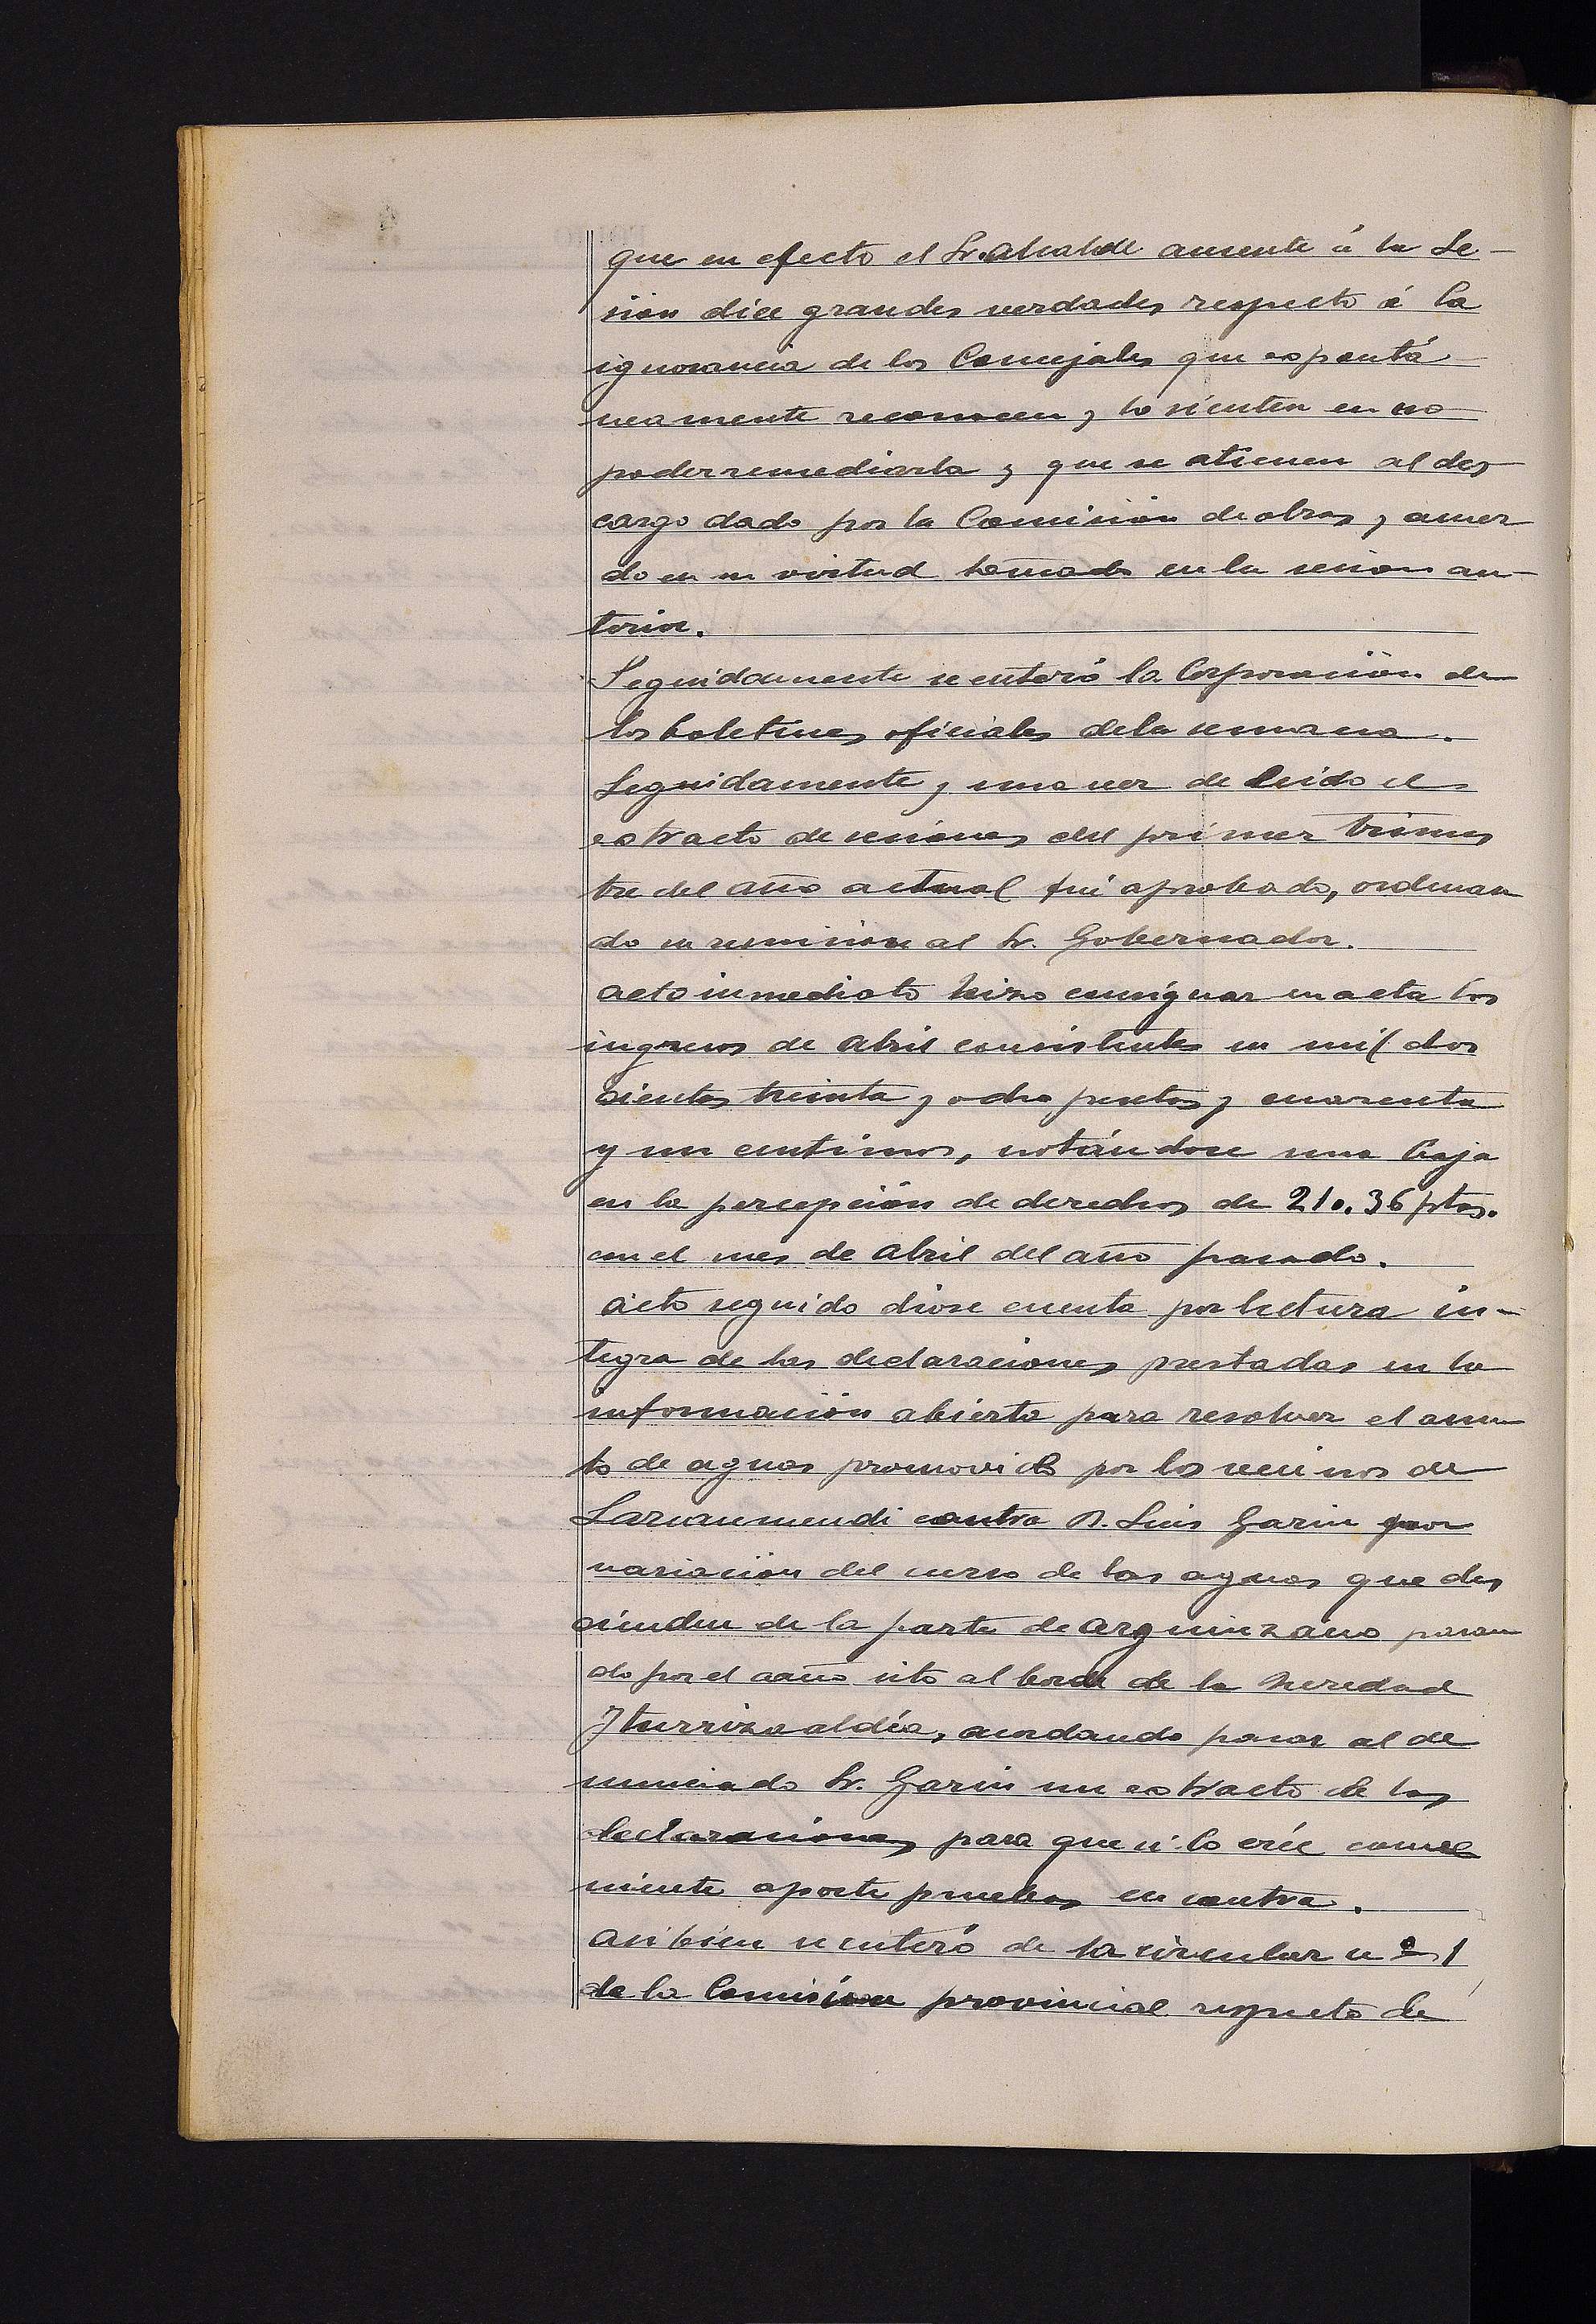 que en efecto el Sr. alcalde ausente á la Se-
sión dice grandes verdades respecto á la
ignorancia de los Concejales que espontá
neamente reconocen y lo sienten en no
poder remediarla y que se atienen al des
cargo dado por la Comisión de obras y acuer
do en su virtud tomado en la sesion an-
terior.
Seguidamente se enteró la Corporación de
los boletines oficiales de la semana.
Seguidamente y una vez de leido el
estracto de sesiones del primer trimes
tre del año actual fué aprobado, ordenan
do su remision al Sr. Gobernador.
acto inmediato hizo consignar en acta los
ingresos de abril consistentes en mil dos
cientas treinta y ocho pesetas y cuarenta
y un centimos, notándose una baja
en la percepción de derechos de 210.36 ptas.
con el mes de abril del año pasado.
acto seguido diose cuenta por lectura in-
tegra de las declaraciones prestadas en la
información abierta para resolver el asun
to de aguas promovido por los vecinos de
Larraumendi contra D. Luis Garin por
variación del curso de las aguas que des
cienden de la parte de arguinzano pasan
do por el caño sito al borde de la heredad
Iturrizaaldéa, acordando pasar al de
nunciado Sr. Garin un estracto de las
declaraciones para que si lo crée conve
niente aporte pruebas en contra.
asi bien se enteró de la circular nº 1
de la Comision provincial respecto de